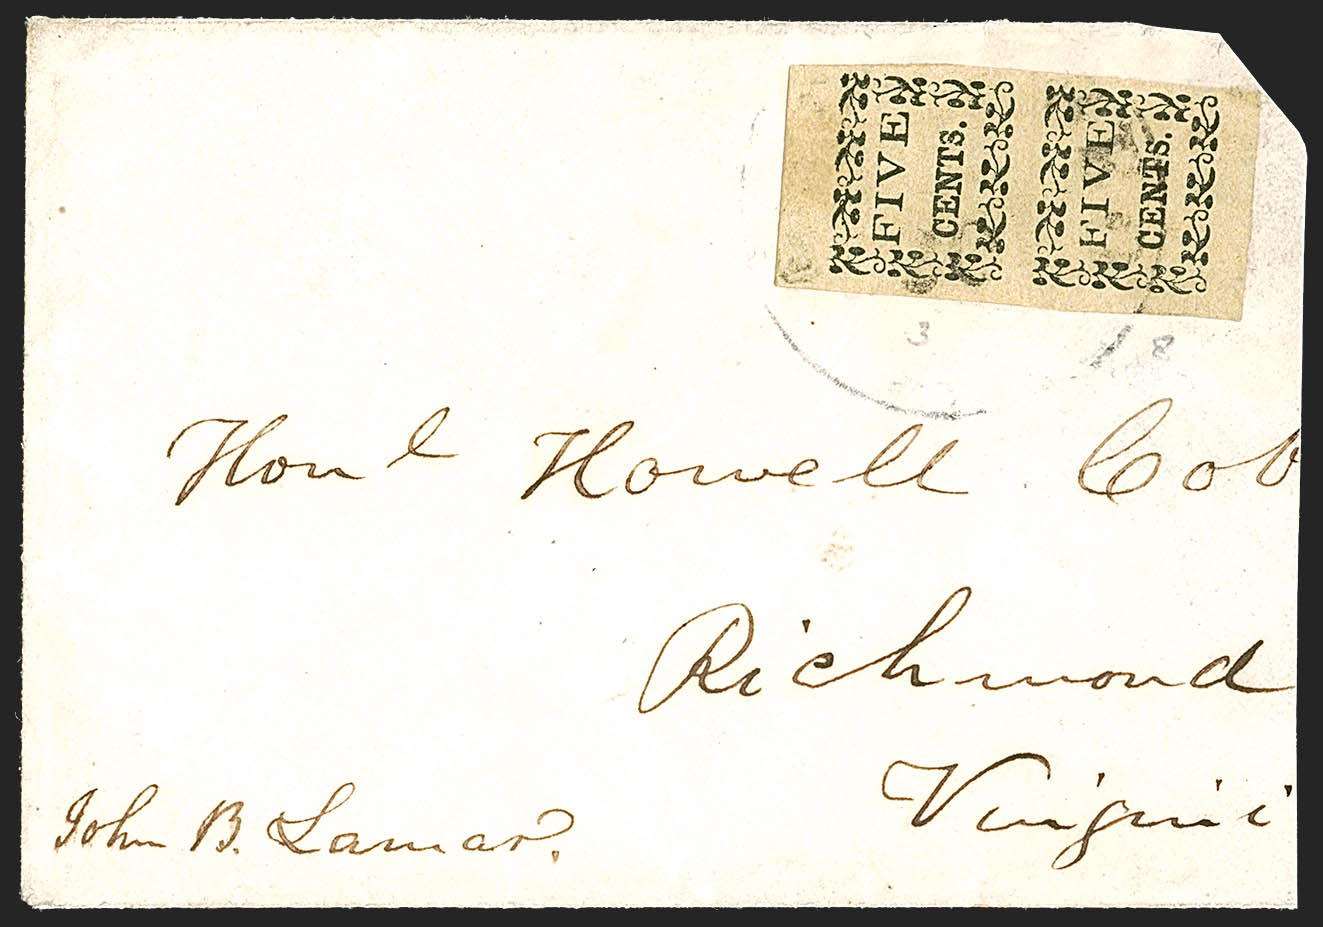 FIVE CENTS.
FIVE CENTS.
3
18
Honl Howell Cob
Richmond
Virgini
John B. Lamar.